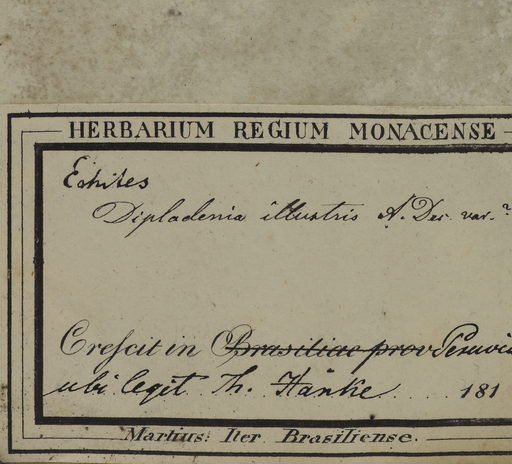 HERBARIUM REGIUM MONACENSE
Echites
Dipladenia illustris A. Dec. var.?
Crescit in Brasiliae prov Peruvia
ubi legit Th. Hänke 181
Martius: Iter Brasiliense.